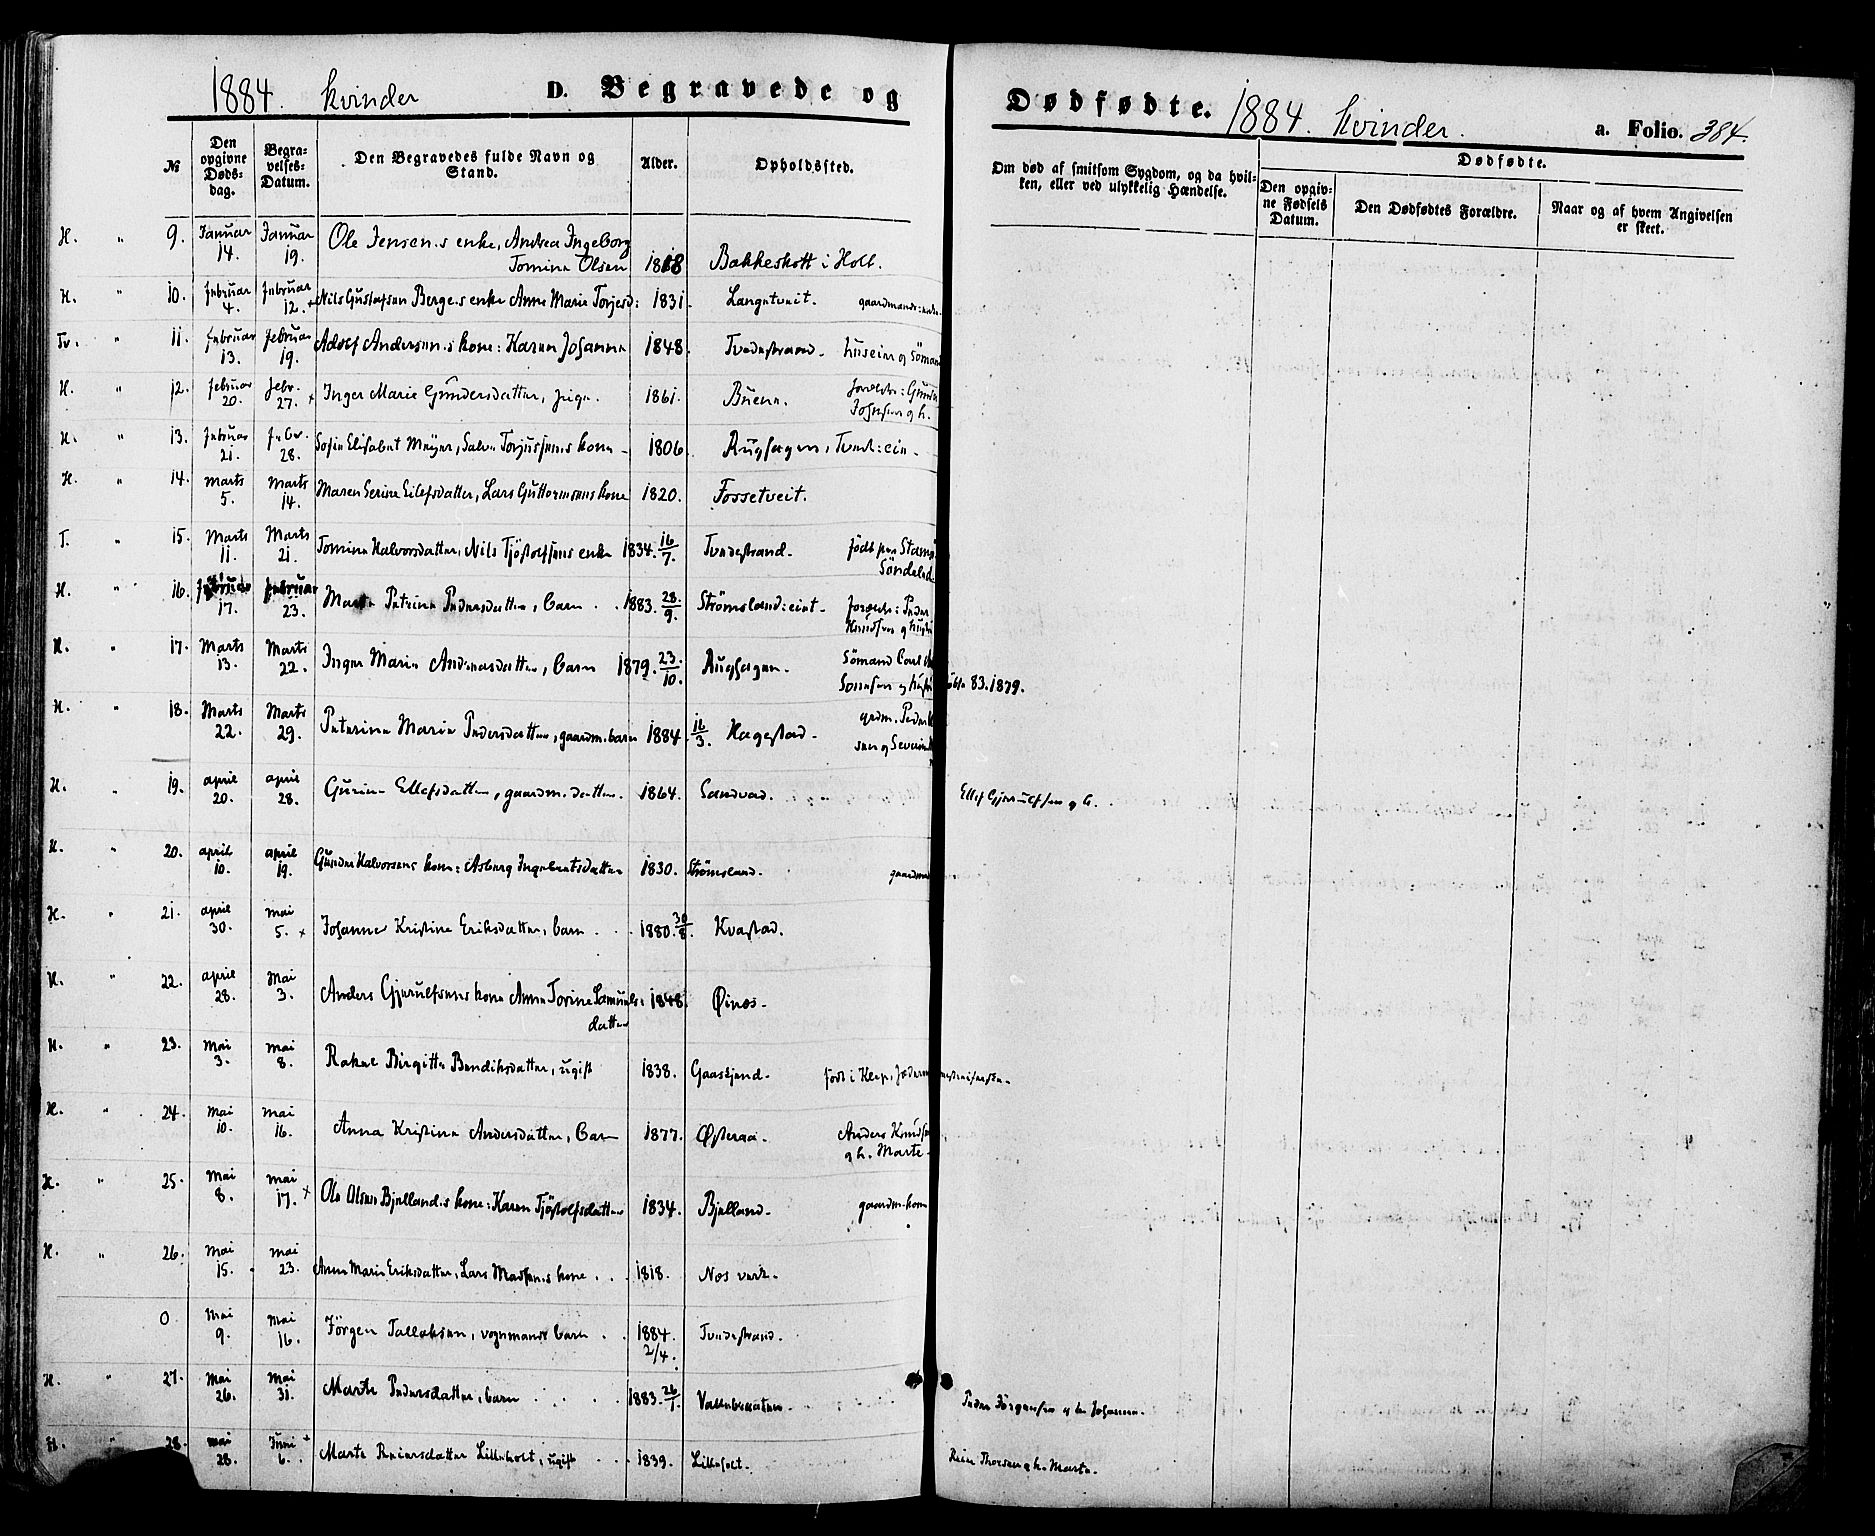 1884. kvinder D. Begravede og
Dødfødte. 1884. kvinder. a. Folio. 384.
№ Den opgivne Døds-dag. Begra-velses-Datum. Den Begravedes fulde Navn og Stand. Alder. Opholdssted.
Om død af smitsom Sygdom, og da hvil-ken, eller ved ulykkelig Hændelse. Dødfødte. Den opgiv-ne Fødsels Datum. Den Dødfødtes Forældre. Naar og af hvem Angivelsen er skeet.
H. " 9. Januar 14. Januar 19. Ole Jensen.s enke, Andrea Ingeborg
Tomine Olsen 1818 Bakkeskott i Holl.
H. " 10. februar 4. februar 12. + Nils Gustafsen Berge.s enke Anne Marie Torjesd: 1831. Langetveit. gaardmands:
Tv. " 11. februar 13. februar 19. Adolf Andersen.s kone: Karen Josanne 1848. Tvedestrand. huseier og Sömand
H. " 12. februar 20. febr. 27. + Inger Marie Gundersdatter, pige. 1861. Buene. foreldre: Gunder
H. " 13. februar 21. febr. 28. Sofie Elisabet Meyer, Salve Torjussens kone - 1806 Aughagen, Tved:eie.
H. " 14. marts 5. Marts 14. Maren Serine Eilefsdatter, Lars Guttormsens kone 1820. Fossetveit.
T. " 15. Marts 11. Marts 21. Tomine Halvorsdatter, Nils Tjöstolfsens enke 1834. 16/7. Tvedestrand. född paa
Söndeled
H. " 16. februar 17. februar 23. Marte Petrine Pedersdatter, barn . . 1883. 28/9. Strömsland:eiet. foreldre: Peder
Knudsen og
H. " 17. Marts 13. Marts 22. Inger Marie Andreasdatter, barn 1879. 23/10. Aughagen. Sömand Carl
83. 1879.
H. " 18. Marts 22. Marts 29. Peterine Marie Pedersdatter, gaardm. barn 1884. 16/3. Hagestad. grdm. Peder
sen og Severine
H. " 19. april 20. april 28. Gurine Ellefsdatter, gaardm. datter. 1864. Sandvad. Ellef Gjerulfsen og h.
H. " 20. april 10. april 19. Gunder Halvorsens kone: Asberg Ingebretsdatter 1830. Strömsland. gaardm
H. " 21. april 30. mai 5. + Josanne Kristine Eriksdatter, barn . . 1880. 30/8. Kvastad.
H. " 22. april 28. Mai 3. Anders Gjerulfsens kone Anne Torine Samuels: 1848. Öinæs.
datter
H. " 23. Mai 3. mai 8. Rakel Birgitte Bendiksdatter, ugift 1838. Gaaskjend. född i Klep,
H. " 24. mai 10. mai 16. Anna Kristine Andersdatter, barn 1877. Österaa. Anders Knudsen
og h. Marte.
H. " 25. mai 8. mai 17. + Ole Olsen Bjelland.s kone: Karen Tjöstolfsdatter 1834. Bjelland. gaardm. kone
H. " 26. mai 15. mai 23. Anne Marie Eriksdatter, Lars Madsen.s kone . . . 1818. Næs verk.
0 Mai 9. mai 16. Jörgen Tallaksen, vognmands barn . . 1884. 2/4. Tvedestrand.
H. " 27. mai 26. mai 31. Marte Pedersdatter, barn . . . . 1883. 26/1. Vallebekken. Peder Jörgensen og h. Josanne.
H. " 28. mai 28. Juni 6. + Marte Reiersdatter Lilleholt, ugift . . . 1839. Lilleholt. Reier Thorsen og h. Marte.